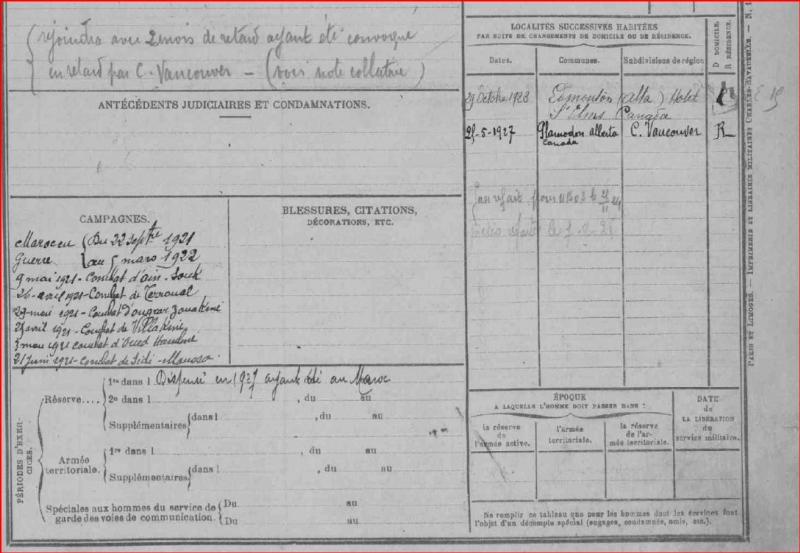 (rejoindra avec 2 mois de retard ayant été convoqué
en retard par C. Vancouver — (voir note collective)
ANTÉCÉDENTS JUDICIAIRES ET CONDAMNATIONS.
CAMPAGNES.
Maroc en
Guerre
{Du 22 septbre 1921
au 5 mars 1922
9 mai 1921 - Combat d'ain-
26 avril 1921 - Combat de Terroual
29 mai 1921 - Combat
avril 1921 - Combat de
mai 1921 combat d'Oued
21 juin 1921 - combat de Sidi-
BLESSURES, CITATIONS,
DÉCORATIONS, ETC.
PÉRIODES D'EXERCICES.
Réserve....
1re dans l Dispensé en 1927 ayant été au Maroc
2e dans l , du au
Supplémentaires {dans l , du au
Armée
territoriale.
1re dans l , du au
Supplémentaires {dans l , du au
Spéciales aux hommes du service de
garde des voies de communication.
{Du au
Du au
LOCALITÉS SUCCESSIVES HABITÉES
PAR SUITE DE CHANGEMENTS DE DOMICILE OU DE RÉSIDENCE.
Dates. Communes. Subdivisions de région
D DOMICILE
R RÉSIDENCE.
29 Octobre 1928 Edmonton (Alta) Hotel
St Canada
25-5-1927 Plamodon alberta C. Vancouver R
Canada
ÉPOQUE
A LAQUELLE L'HOMME DOIT PASSER DANS :
la réserve
de
l'armée active.
l'armée
territoriale.
la réserve
de l'ar-
mée territoriale.
DATE
de
LA LIBÉRATION
du
service militaire.
Ne remplir ce tableau que pour les hommes dont les services font
l'objet d'un décompte spécial (engagés, condamnés, omis, etc.).
PARIS ET LIMOGES. — IMPRIMERIE ET LIBRAIRIE MILITAIRES CHARLES-LAVAUZELLE. — N. 1